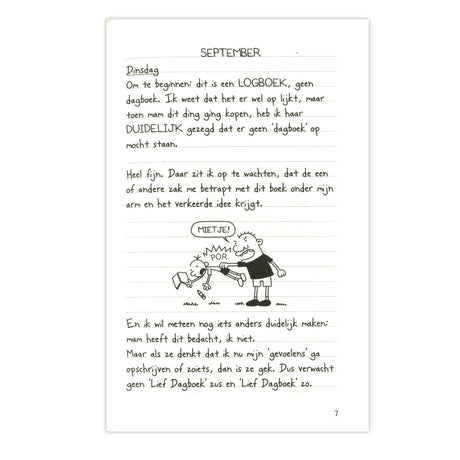 SEPTEMBER
Dinsdag
Om te beginnen: dit is een LOGBOEK, geen
dagboek. Ik weet dat het er wel op lijkt, maar
toen mam dit ding ging kopen, heb ik haar
DUIDELIJK gezegd dat er geen 'dagboek' op
mocht staan.
Heel fijn. Daar zit ik op te wachten, dat de een
of andere zak me betrapt met dit boek onder mijn
arm en het verkeerde idee krijgt.
MIETJE!
POR
En ik wil meteen nog iets anders duidelijk maken:
mam heeft dit bedacht, ik niet.
Maar als ze denkt dat ik nu mijn 'gevoelens' ga
opschrijven of zoiets, dan is ze gek. Dus verwacht
geen 'Lief Dagboek' zus en 'Lief Dagboek' zo.
7